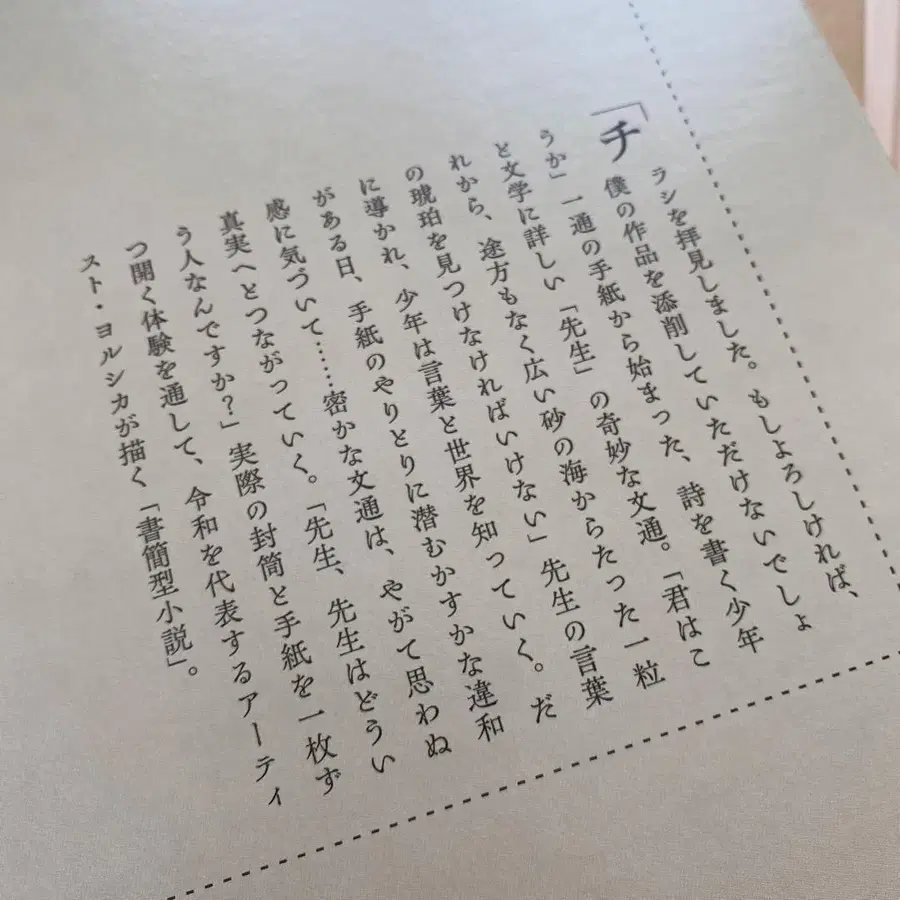 「チラシを拝見しました。もしよろしければ、
僕の作品を添削していただけないでしょ
うか」一通の手紙から始まった、詩を書く少年
と文学に詳しい「先生」の奇妙な文通。「君はこ
れから、途方もなく広い砂の海からたった一粒
の琥珀を見つけなければいけない」先生の言葉
に導かれ、少年は言葉と世界を知っていく。だ
がある日、手紙のやりとりに潜むかすかな違和
感に気づいて……密かな文通は、やがて思わぬ
真実へとつながっていく。「先生、先生はどうい
う人なんですか?」実際の封筒と手紙を一枚ず
つ開く体験を通して、令和を代表するアーティ
スト・ヨルシカが描く「書簡型小説」。